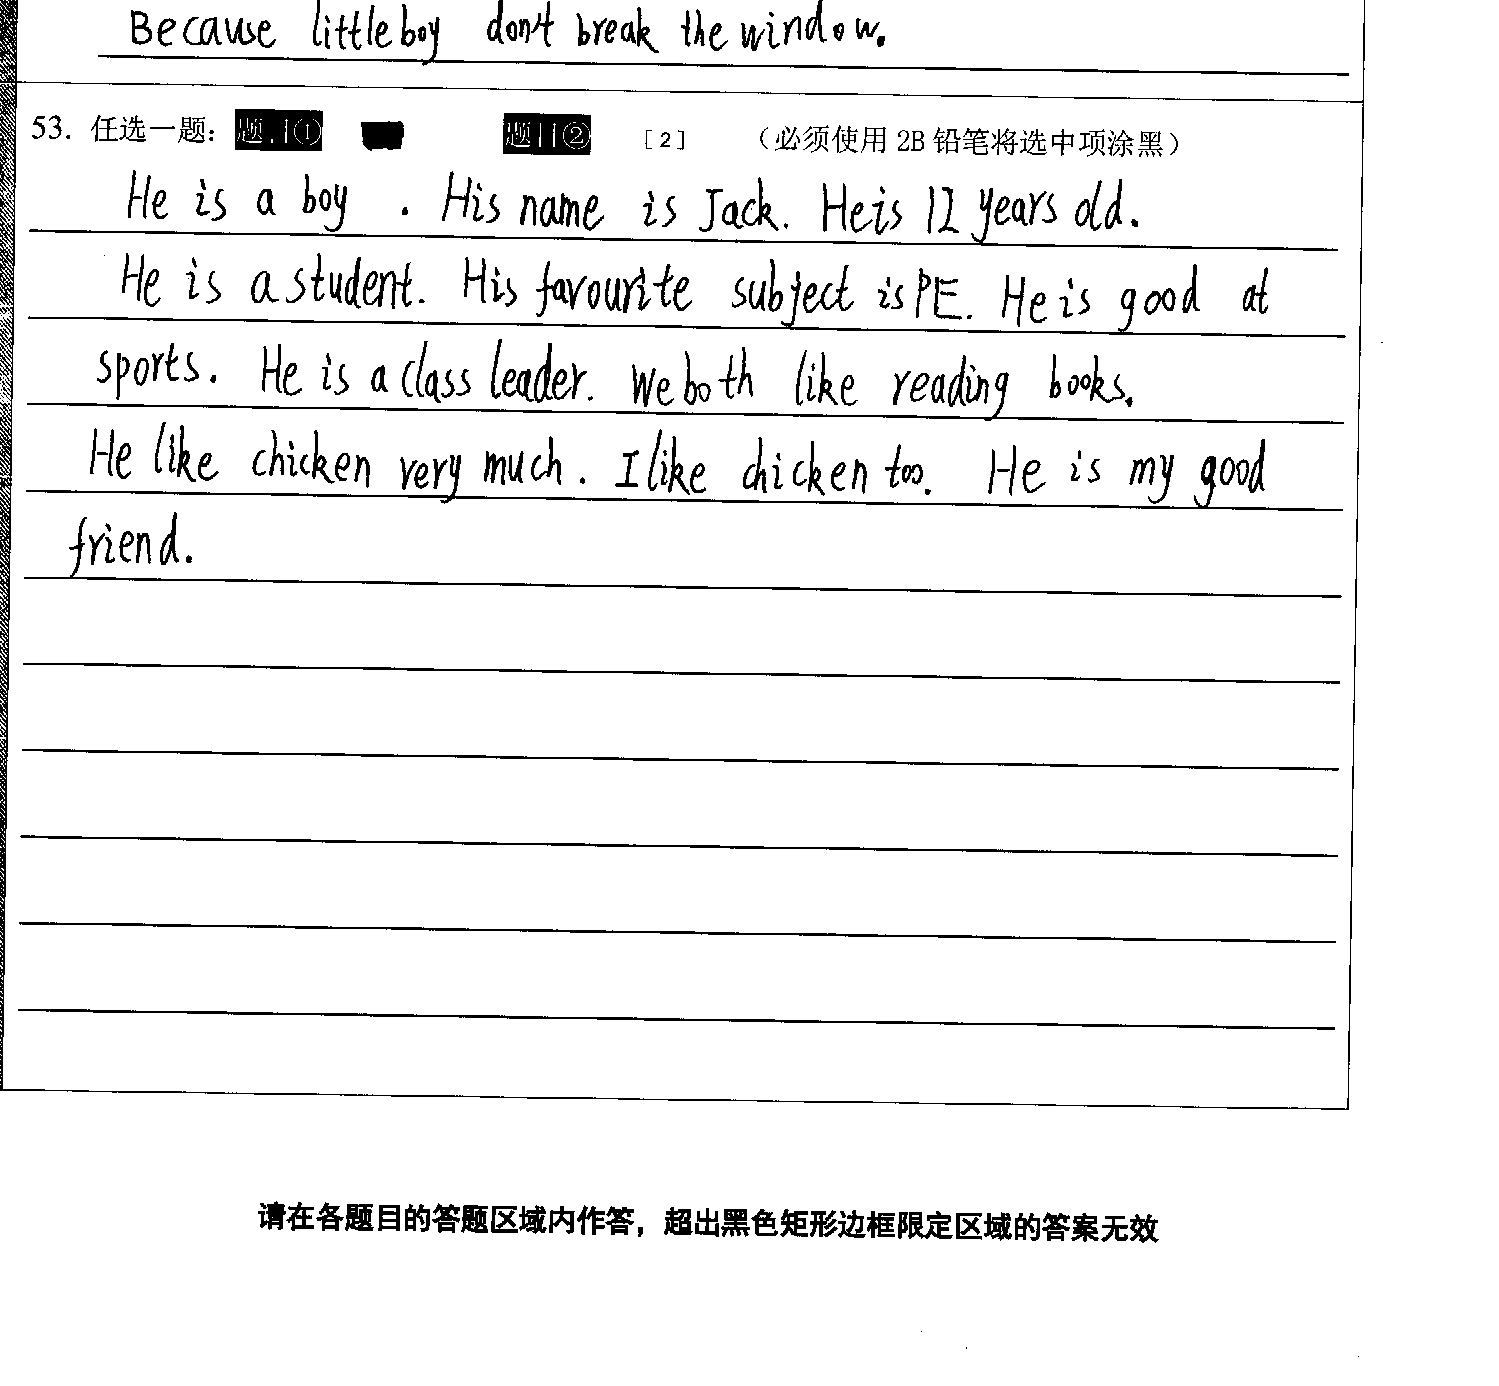 Because little boy don't break the window.
53. 任选一题： 题目① 题目② [2] （必须使用 2B 铅笔将选中项涂黑）
He is a boy . His name is Jack. He is 12 years old.
He is a student. His favourite subject is PE. He is good at
sports. He is a class leader. We both like reading books.
He like chicken very much. I like chicken too. He is my good
friend.
请在各题目的答题区域内作答，超出黑色矩形边框限定区域的答案无效